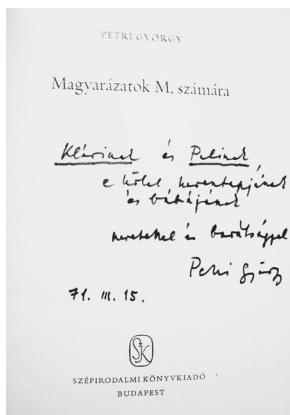 PETRI GYÖRGY
Magyarázatok M. számára
Klárinak és Pelinek,
e kötet keresztapjának
és bábájának
szeretettel és barátsággal
Petri György
71. III. 15.
SZK
SZÉPIRODALMI KÖNYVKIADÓ
BUDAPEST